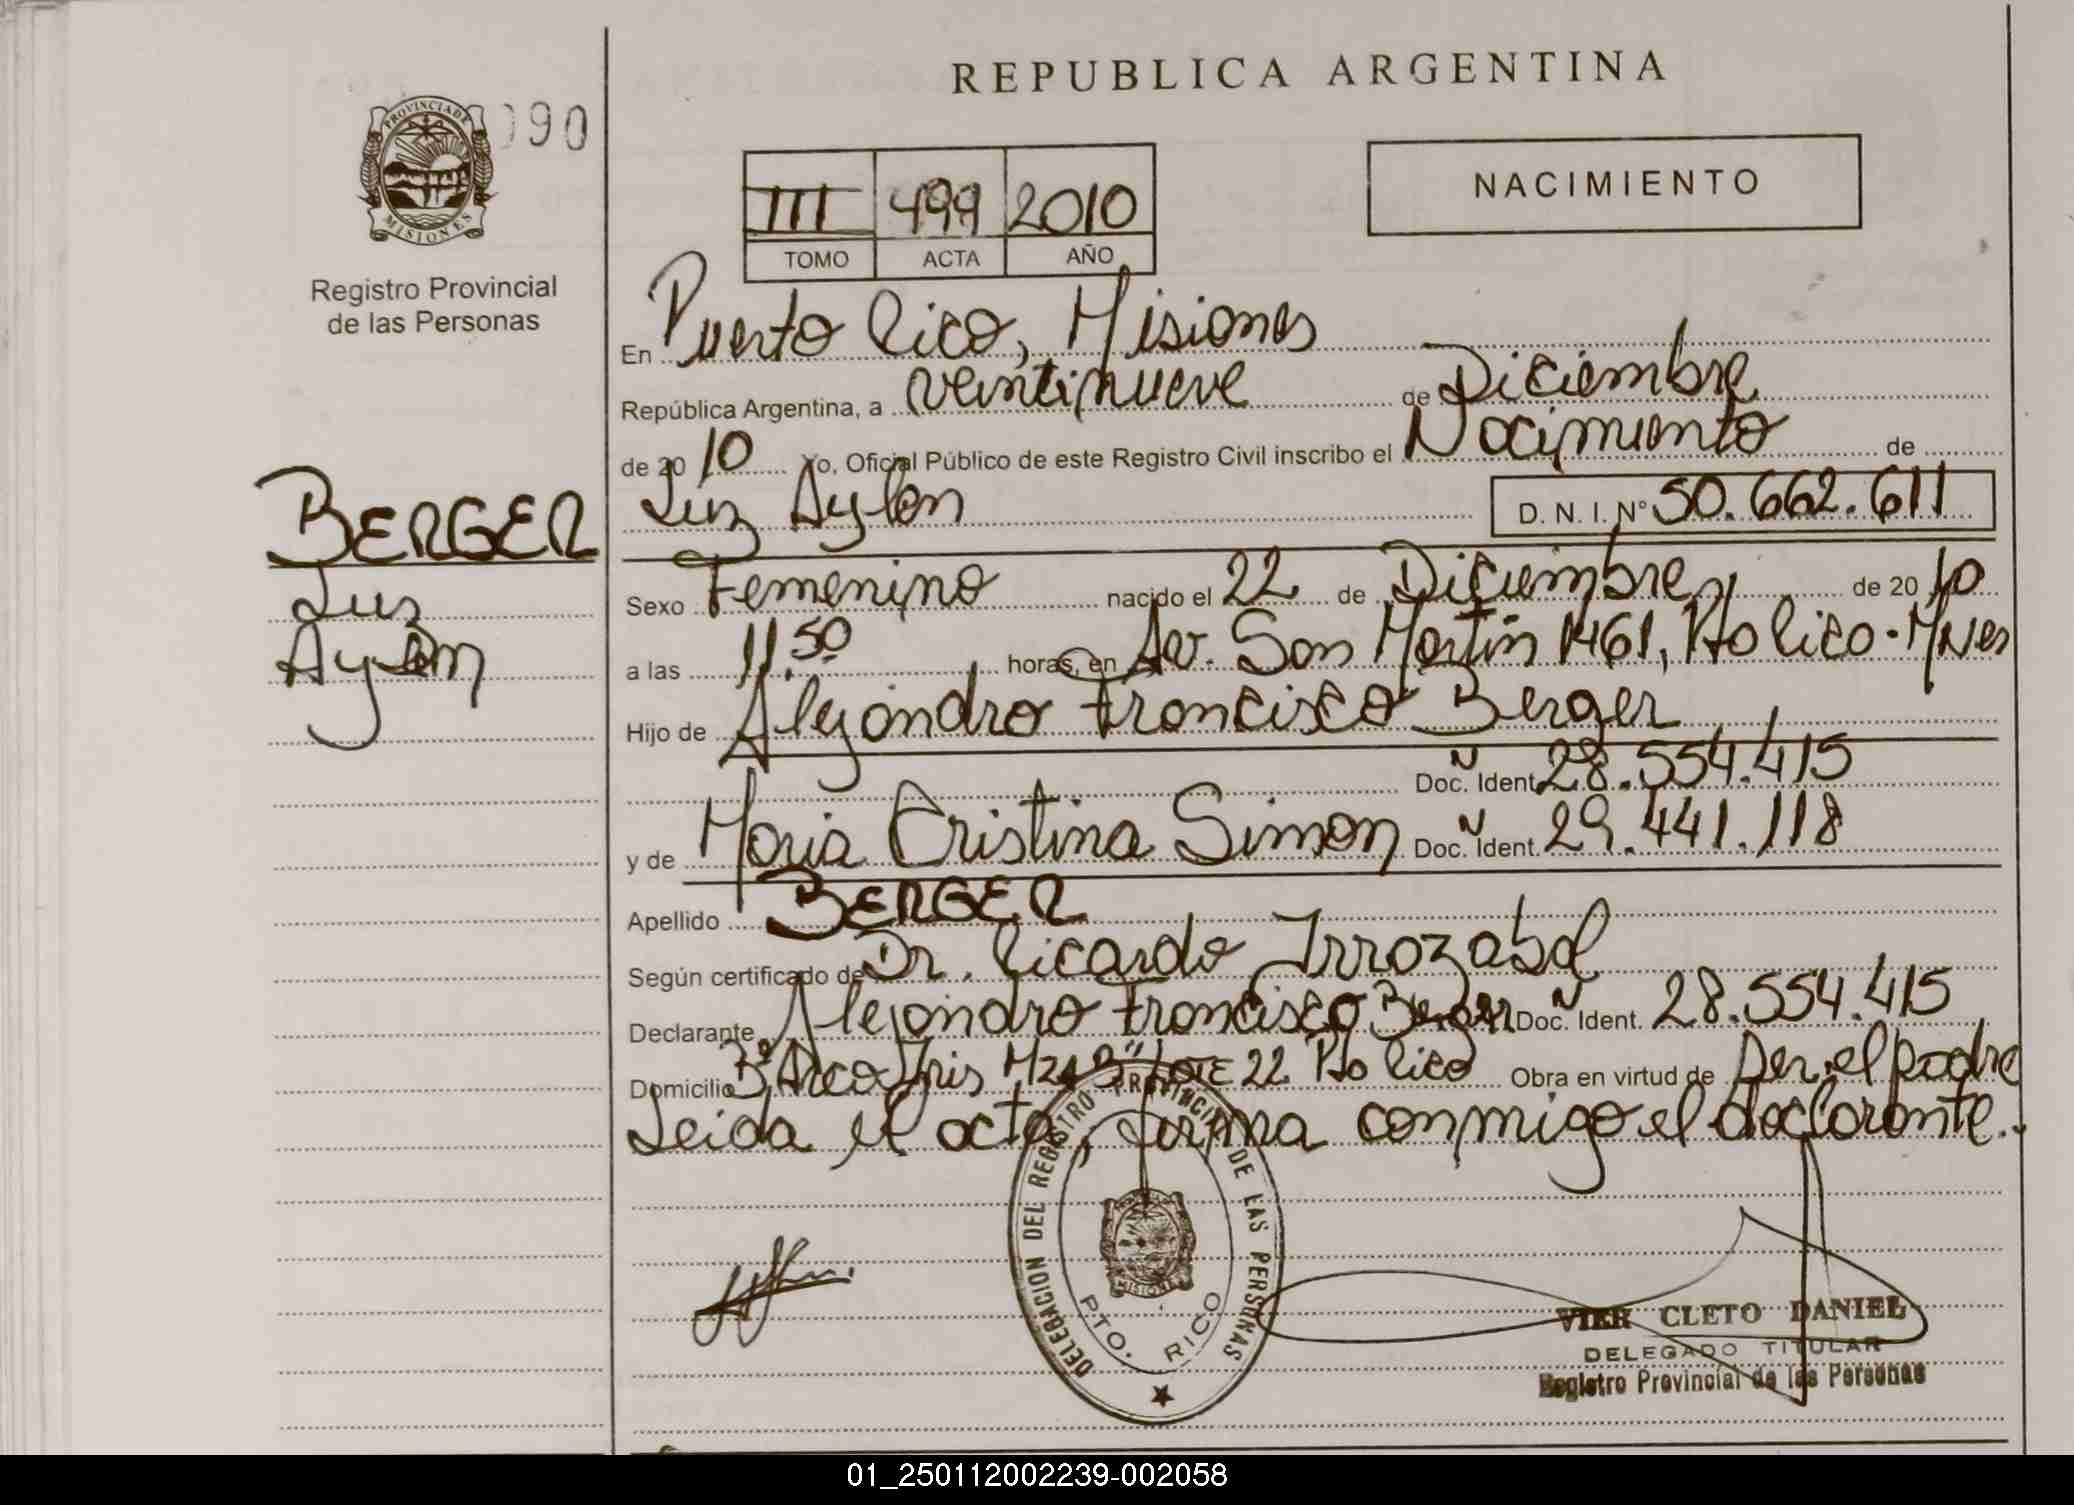 REPUBLICA ARGENTINA
PROVINCIA DE MISIONES
090
Registro Provincial
de las Personas
III 499 2010
TOMO ACTA AÑO
NACIMIENTO
En Puerto Rico, Misiones
República Argentina, a veintinueve de Diciembre
de 2010 Yo, Oficial Público de este Registro Civil inscribo el Nacimiento de
Luz Aylen D. N. I. Nº 50.662.611
BERGER
Luz
Aylen
Sexo Femenino nacido el 22 de Diciembre de 2010
a las 11.50 horas, en Av. San Martín 1461, Pto Rico - Mnes
Hijo de Alejandro Francisco Berger
Doc. Ident. 28.554.415
y de Maria Cristina Simon Doc. Ident. 29.441.118
Apellido BERGER
Según certificado de Dr. Ricardo Irrazabal
Declarante Alejandro Francisco Berger Doc. Ident. 28.554.415
Domicilio Bº Arco Iris Mza B" LOTE 22 Pto Rico Obra en virtud de Ser el padre
Leida el acta, firma conmigo el declarante.
DELEGACION DEL REGISTRO PROVINCIAL DE LAS PERSONAS
MISIONES
PTO. RICO
VIER CLETO DANIEL
DELEGADO TITULAR
Registro Provincial de las Personas
01_250112002239-002058